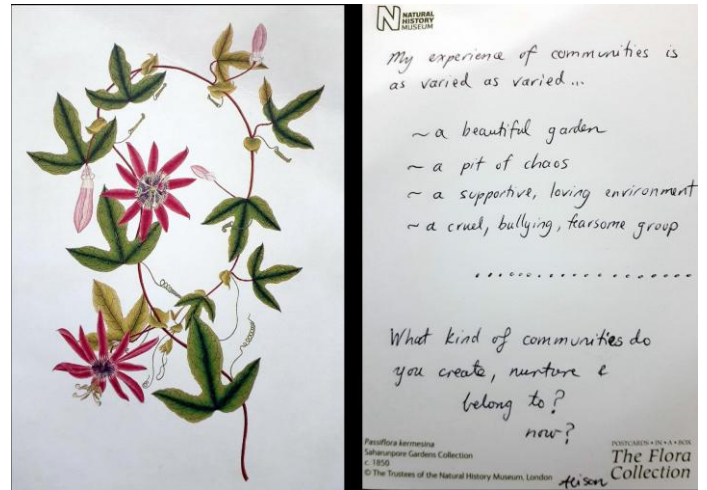 N NATURAL
HISTORY
MUSEUM
My experience of communities is
as varied as varied...
~ a beautiful garden
~ a pit of chaos
~ a supportive, loving environment
~ a cruel, bullying, fearsome group
..................
What kind of communities do
you create, nurture &
belong to?
now?
Passiflora kermesina
Saharunpore Gardens Collection
c. 1850
© The Trustees of the Natural History Museum, London
Alison
POSTCARDS • IN • A • BOX
The Flora
Collection